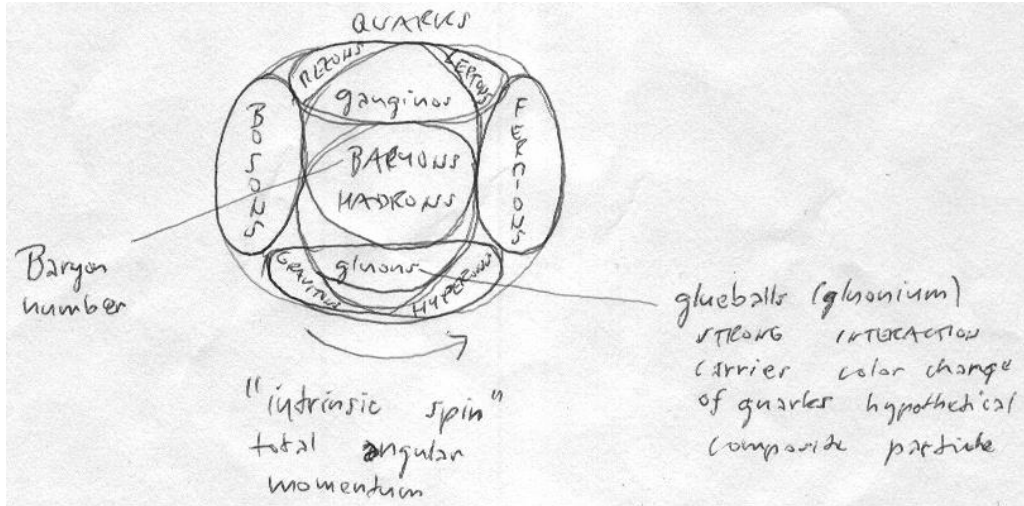 QUARKS
REZONS
LEPTONS
gauginos
BOSONS
FERMIONS
BARYONS
HADRONS
GRAVITONS
gluons
HYPERONS
Baryon
number
glueballs (gluonium)
STRONG INTERACTION
carrier color change
of quarks hypothetical
composite particle
"intrinsic spin"
total angular
momentum